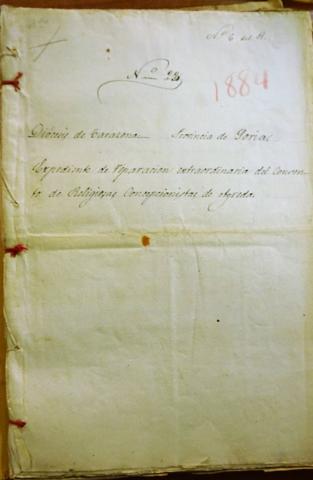 Nº 6 del H.
Nº 28
1884
Diócesis de Tarazona Provincia de Soria
Expediente de reparacion extraordinaria del Conven-
to de Religiosas Concepcionistas de Agreda.